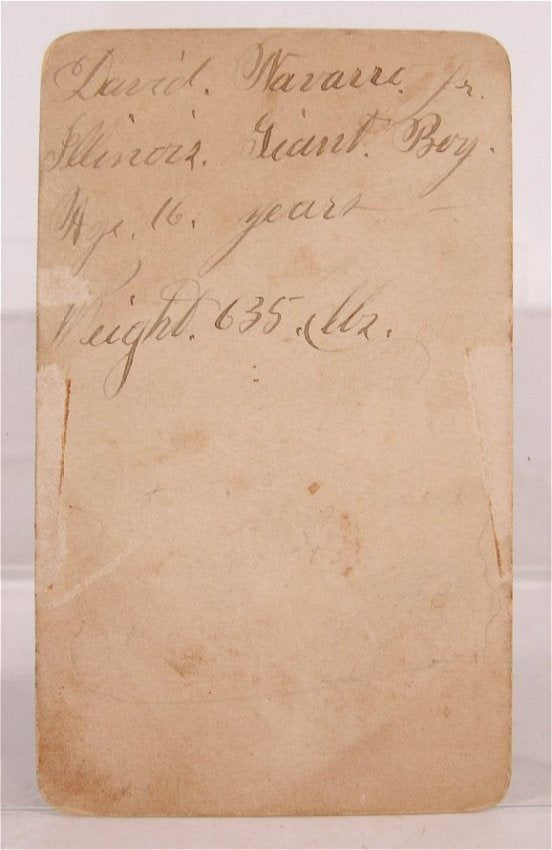 David. Navarre. Jr.
Illinois. Giant. Boy.
Age. 16. years
Weight. 635. lbs.